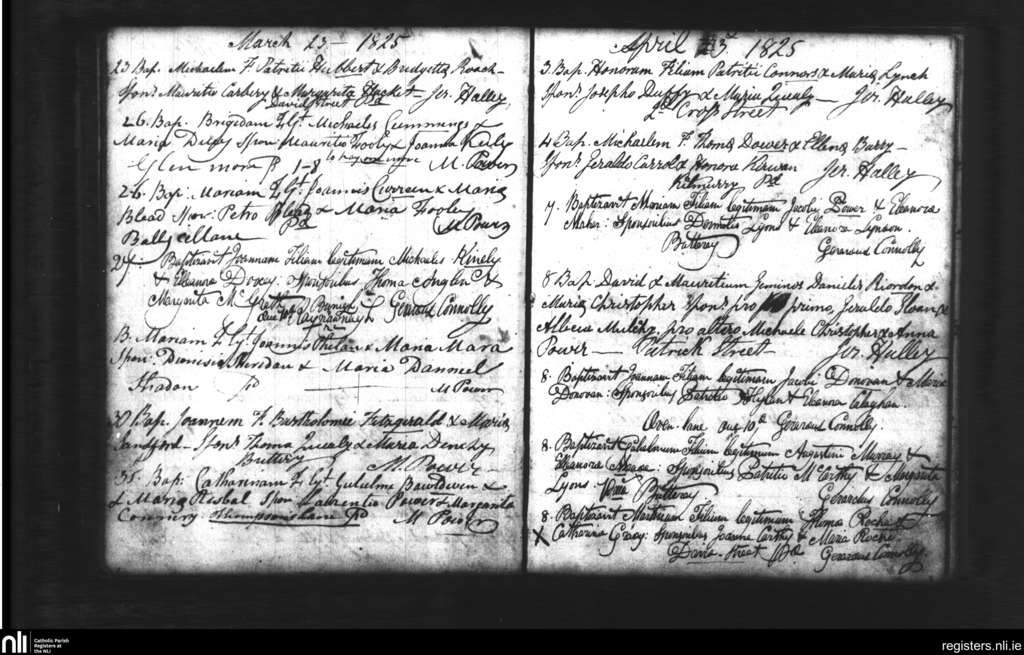 March 23 - 1825
23 Bap. Michaelem F. Patritii Hubbert & Bridgetta Roach
Spon. Mauritio Carbery & Margarita Hacket - Jer. Halley,
David Street Pd
26. Bap. Brigidam F. Lgt. Michaeles Cummings &
Maria Spon Mauritio Fooly & Joanna Kiely
Glen more 1-8 M. Power
26. Bap: Mariam F. Lgt. Joannis Curreen & Maria
Blead Spon: Petro & Maria Fooley
Pd M Power
Ballycillane
27 Baptizavit Joannam Filiam legitimam Michaeles Kinely
& Eleanora Doxey: Sponsoribus Thoma Anglin &
Margarita M. Grath Gerardus Connolly
B. Mariam F. Lgt. Joannis Phelan & Maria Mara
Spon: Dionisio Sheridan & Maria
Pd M Power
30 Bap. Joannem F. Bartholomei Fitzgerald & Maria
Landford - Spon. Thoma Quealy & Maria Denehy
Buttery M. Power
31. Bap: Catharinam F. Lgt. Gulielmi Bawldwen &
& Maria Risbal Spon Power & Margarita
Connery Thompson's lane Pd M Power
April 3d 1825
3. Bap. Honoram Filiam Patritii Connors & Maria Lynch
Spon. Josepho Duffy & Maria Quealy - Jer. Halley
Cross Street
4 Bap. Michaelem F. Thoma Dower & Ellena Barry -
Spon. Geraldo Carrol & Honora Kirwan Jer. Halley
Kilmurry Pd
7. Baptizavit Mariam Filiam legitimam Jacobi Dower & Eleanora
Maher: Sponsoribus Lyons & Eleanora Lynson.
Buttery Gerardus Connolly
8 Bap. David & Mauritium Geminos Danieles Riordon &
Maria Christopher Spon. pro primo, Geraldo Sloan &
pro altero Michaele Christopher & Anna
Power - Patrick Street - Jer. Halley
8. Baptizavit Joannam Filiam legitimam Jacobi Donovan & Maria
Donovan: Sponsoribus Patritio & Eleanora Calaghan.
Oven lane Gerardus Connolly.
8. Baptizavit Gulielmum Filium legitimum Augustini Murray &
Eleanora Meade: Sponsoribus Patritio McCarthy & Margarita
Lyons - Buttery Gerardus Connolly
8. Baptizavit Filium legitimum Thoma Roche &
X Catharina Gracy: Sponsoribus Joanne Carthy & Maria Roche.
David street Gerardus Connolly.
nli Catholic Parish
Registers at
the NLI
registers.nli.ie